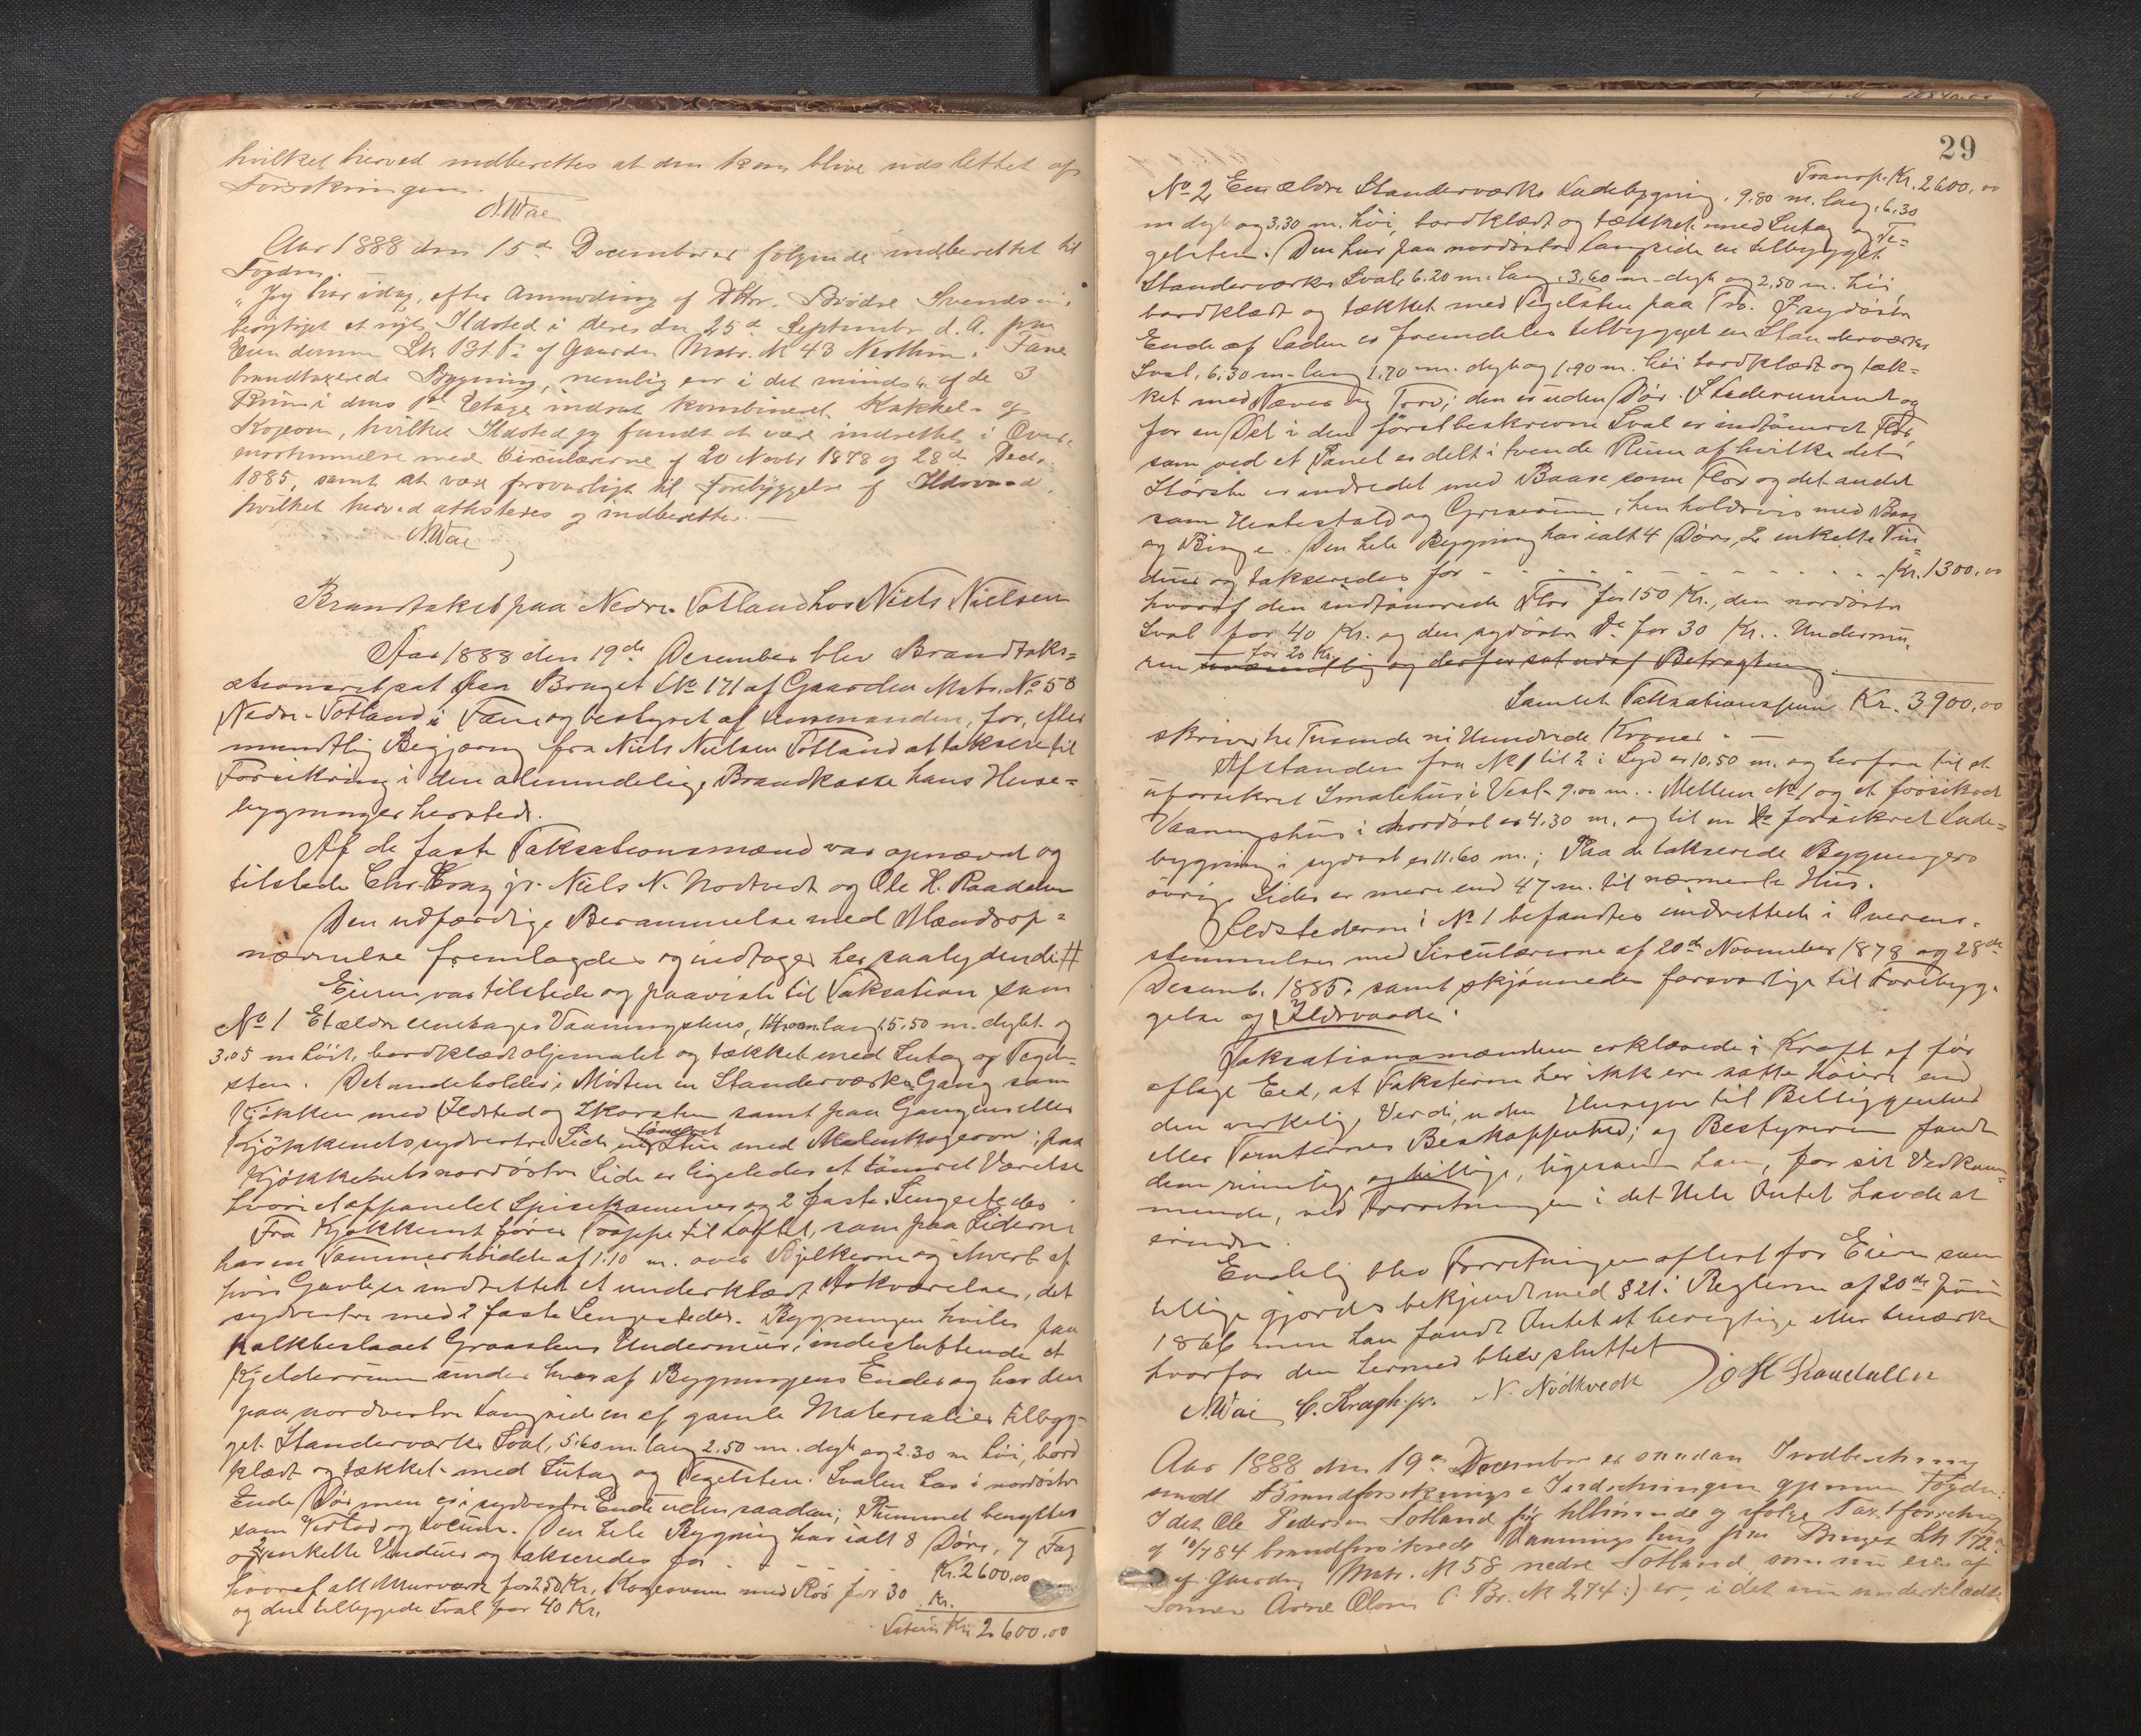 hvilket herved indberettes at den kan blive udslettet af
Forsikringen.
N.Wae
Aar 1888 den 15de December er følgende indberettet til
Fogden.
"Jeg har idag, efter Anmodning af Dhrr. Brødre Svendsen,
besigtiget et nyt Ildsted i deres den 25de September d. A. paa
Eiendommen Lit Bt. No. af Gaarden Matr. No 43 Nesttun i Fane
brandtaxerede Bygning, nemlig en i det mindste af de 3
Rum i dens 1ste Etage indsat kombineret Kakkel- og
Kogeovn, hvilket Ildsted jeg fandt at være indrettet i Over-
ensstemmelse med Circulærerne af 20 Novbr 1878 og 28de Decbr.
1885, samt at være forsvarligt til Forebyggelse af Ildsvaade,
hvilket herved attesteres og indberettes.
N.Wae
Brandtakst paa Nedre Totland hos Niels Nielsen
Aar 1888 den 19de December blev Brandtaks-
ationsret sat paa Bruget No 171 af Gaarden Matr. No 58
Nedre-Totland i Fane og bestyret af Lensmanden, for, efter
mundtlig Begjæring fra Niels Nielsen Totland at taksere til
Forsikring i den almindelige Brandkasse hans Huse-
bygninger hersteds.
Af de faste Taksationsmænd var opnævnt og
tilstede Chr. Krag jr. Niels N. Nødtvedt og Ole H. Raadalen
Den udfærdige Berammelse med Mændsop-
nævnelse fremlagdes og indtages her saalydende #
Eieren var tilstede og paaviste til Taksation som
No 1 Et ældre eenetages Vaaningshus, 14.00 m. langt 5.50 m. dybt og
3.05 m høit, bordklædt oljemalet og tækket med Sutag og Tegel-
sten. Det indeholder i Midten en Standerværks Gang som
Kjøkken med Ildsted og Skorsten samt paa Gangens eller
Kjøkkenets sydvestre Side en tømret Stue med Malmkogeovn; paa
Kjøkkenets nordøstre Side er ligeledes et tømret Værelse
hvori et afpanelet Spisekammer og 2 faste Sengesteder
Fra Kjøkkenet fører Trappe til Loftet, som paa Siderne
har en Tømmerhøide af 1.10 m. over Bjelkerne og i hvert af
hvis Gavle er indrettet et underklædt Arkværelse, det
sydvestre med 2 faste Sengesteder. Bygningen hviler paa
kalkbeslaaet Graastens Undermur, indesluttende et
Kjelderrum under hver af Bygningens Ender og har den
paa nordvestre Langside en af gamle Materialier tilbyg-
get Standerværks Sval, 5.60 m. lang 2.50 m. dyb og 2.30 m høi, bord
klædt og tækket med Sutag og Tegelsten. Svalen har i nordøstre
Ende Dør men er i sydvestre Ende uden saadan; Rummet benyttes
som Vedbod og locum. Den hele Bygning har ialt 8 Døre, 7 Fag
og 2 enkelte Vinduer og takseredes for - - - Kr. 2600,00
hvoraf alt Murværk for 250 Kr. Kogeovnen med Rør for 30 Kr.
og den tilbyggede Sval for 40 Kr.
Lateris Kr 2600.00
29
Transp. Kr. 2600,00
No 2 En ældre Standerværks Ladebygning, 9.80 m. lang, 6.30
m dyb og 3.30 m. høi, bordklædt og tækket med Sutag og Te-
gelsten. Den har paa nordøstre Langside en tilbygget
Standerværks Sval 6.20 m. lang, 3.60 m dyb og 2.50 m. høi
bordklædt og tækket med Tegelsten paa Tro. I sydøstre
Ende af Laden er fremdeles tilbygget en Standerværks
Sval, 6.30 m. lang 1.70 m. dyb og 1.90 m. høi bordklædt og tæk-
ket med Næver og Torv; den er uden Dør. I Laderummet og
for en Del i den førstbeskrevne Sval er indtømret Flor,
som ved et Panel er delt i tvende Rum af hvilke det
Største er indredet med Baase som Flor og det andet
som Hestestald og Griserum, henholdsvis med Baas
og Binge. Den hele Bygning har ialt 4 Døre, 2 enkelte Vin-
duer og takseredes for - - - - - - - - Kr. 1300,00
hvoraf den indtømrede Flor for 150 Kr., den nordøstre
Sval for 40 Kr. og den sydøstre Do for 30 Kr.. Undermu-
ren for 20 Kr. uvæsentlig og derfor sat ud af Betragtning
Samlet Taksationssum Kr. 3900,00
skriver tre Tusinde ni Hundrede Kroner. —
Afstanden fra No 1 til 2 i Syd er 10,50 m. og herfra til et
uforsikret Smalehus i Vest 9.00 m.. Mellem No 1 og et forsikret
Vaaningshus i Nordøst er 4.30 m, og til en do forsikret Lade-
bygning i sydvest er 11.60 m.; Paa de takserede Bygningers
øvrige Sider er mere end 47 m. til nærmeste Hus.
Ildstederne i No 1 befandtes indrettede i Overens-
stemmelse med Sirculærerne af 20de November 1878 og 28de
Desemb. 1885, samt skjønnedes forsvarlige til Forebyg-
gelse af Ildsvaade.
Taksationsmændene erklærede i Kraft af før
aflagt Eed, at Taksterne her ikke ere satte Høiere end
den verkelige Verdi, uden Hensyn til Beliggenhed
eller Tomternes Beskaffenhed; og Bestyreren fandt
dem rimelige og billige, ligesom han, for sit Vedkom-
mende, ved Forretningen i det Hele Intet havde at
erindre.
Endelig blev Forretningen oplæst for Eieren som
tillige gjordes bekjendt med § 21 i Reglerne af 20de Juni
1866 men han fandt Intet at berigtige eller bemærke
hvorfor den hermed blev sluttet
N.Wae C. Kragh jr. N. Nødtvedt O H Raadallen
Aar 1888 den 19de December er saadan Indberetning
sendt Brandforsikrings-Indretningen gjennem Fogden:
I det Ole Pedersen Totland før tilhørende og ifølge Taxtforretning
af 10/7 84 brandforsikrede Vaanings hus paa Bruget Lit 172
af Gaarden Matr. No 58 nedre Totland, som nu eies af
Sønnen Arne Olsen (: Br. No 274 :) er, i det nu underklædte